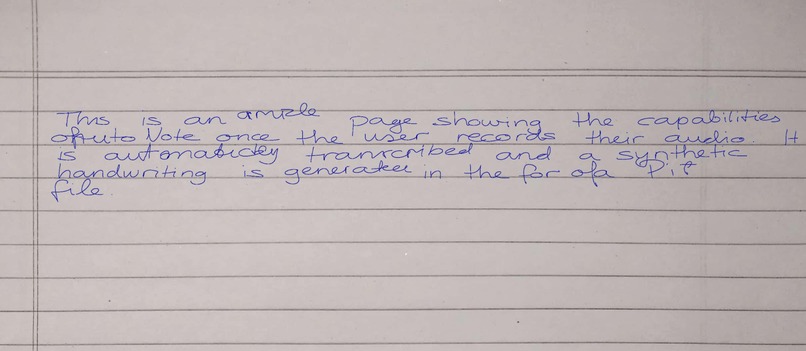 This is an amzle page showing the capabilities
ofuto Note once the user records their audio. It
is automaticley trancribed and a synthetic
handwriting is generatee in the for ofa
file.